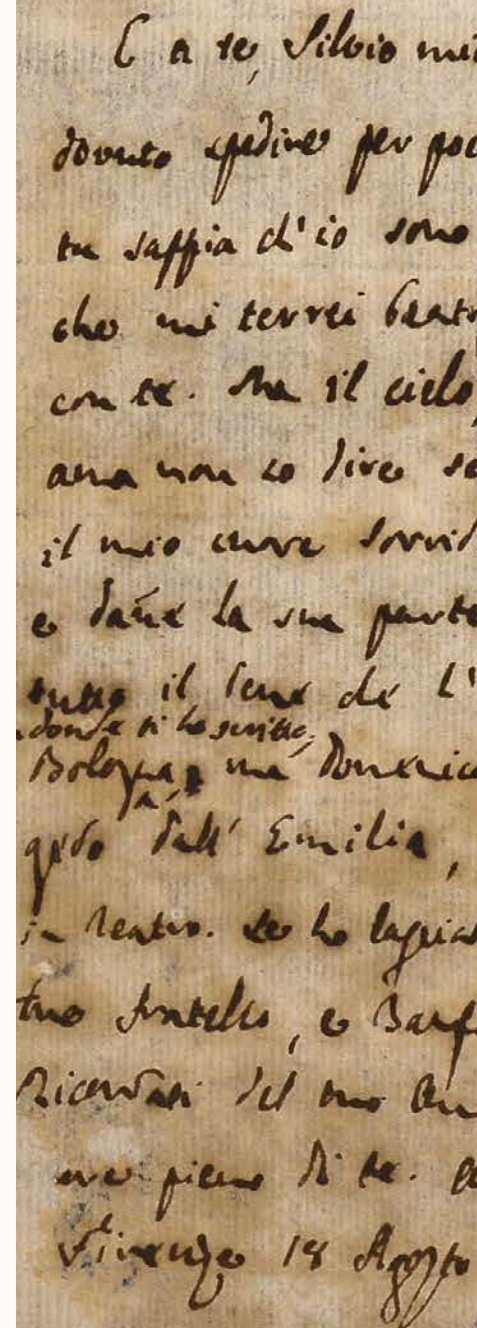 E a te, Silvio mi
dovuto spedire per poc
tu sappia ch'io sono
che mi terrei beat
con te. Ma il cielo,
ama non so dire se
il mio cuore sorrid
e la sua parte
tutto il bene de L'
donde ti ho scritto,
Bologna, ma Domenica
dall' Emilia,
in teatro. Le ho lasciat
tuo fratello, e
Ricordati del tuo
pieno di te.
Firenze 18 Agosto